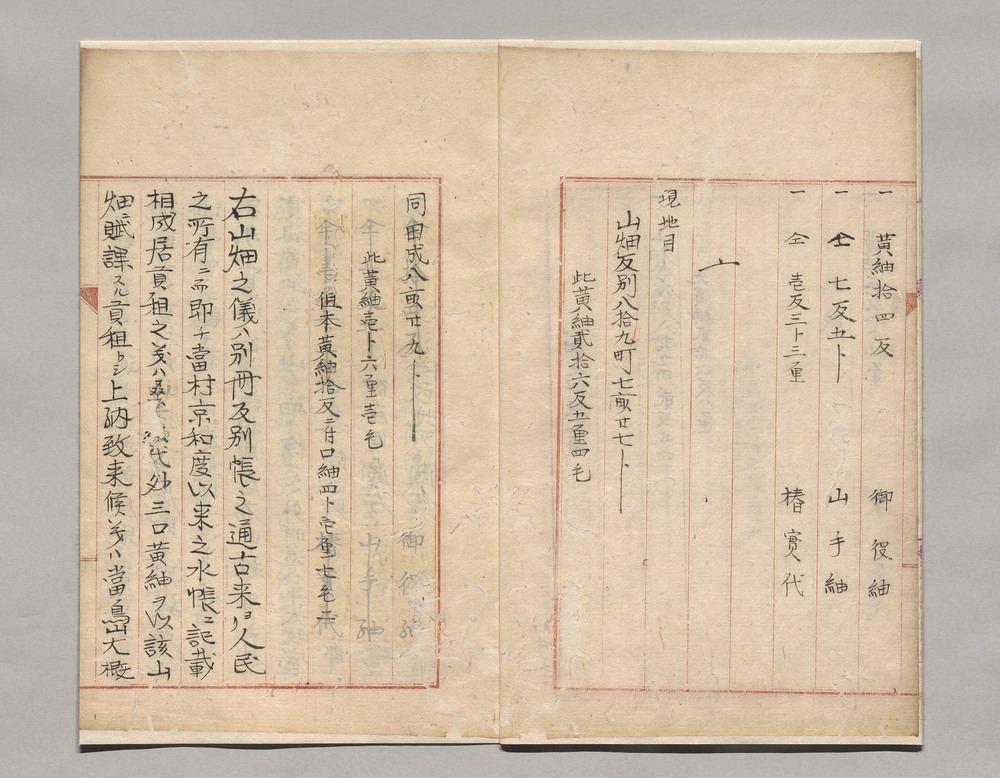 一 黄紬拾四反 御役紬
一 仝 七反五ト 山手紬
一 仝 壱反三ト三厘 椿実代
現地目
山畑反別八拾九町七畝廿七ト
此黄紬貳拾六反五厘四毛
同 成八畝廿九
此黄紬壱ト六厘壱毛
但本黄紬拾反ニ付口紬四ト壱厘七毛
右山畑之儀ハ別冊反別帳之通古来ヨリ人民
之所有ニ而即チ當村享和度以来之水帳ニ記載
相成居貢租之義ハ 三口黄紬ヲ以該山
畑ニ賦課スル貢租トシ上納致来候義ハ當島大概